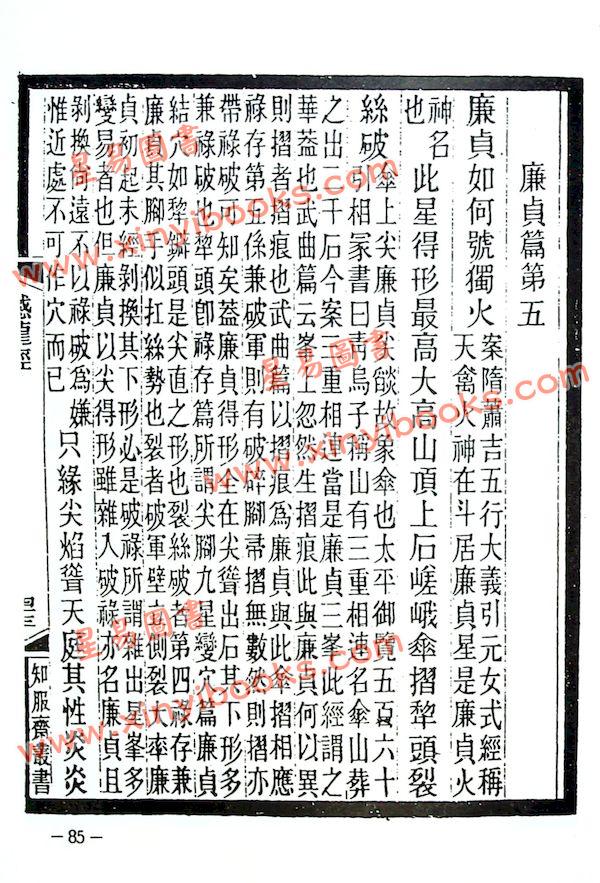 廉貞篇第五
廉貞如何號獨火 案隋蕭吉五行大義引元女式經稱天禽火神在斗居廉貞星是廉貞火
神名也 此星得形最高大高山頂上石嵯峨傘摺犂頭裂
絲破 傘上尖廉貞尖燄故象傘也太平御覽五百六十引相冢書曰靑烏子稱山有三重相連名傘山葬
之出二千石今案三重相連當是廉貞三峯此經謂之
華葢也武曲篇云峯上忽然生摺痕此與廉貞何以異
則摺者摺痕也武曲篇以摺痕爲廉貞與此傘摺相應
祿存第五係兼破軍則有破碎腳帚摺無數然則摺亦
帶祿破可知矣葢廉貞得形全在尖聳出石其下形多
兼祿破也犂頭卽祿存篇所謂尖腳九星變穴篇廉貞
結穴如犂鐴頭是尖直之形也裂絲破者第四祿存兼
廉貞其腳手似扛絲勢也裂者破軍壁立側裂大率廉
貞初起未經剝換其下形必是破祿所謂雜出星峯多
變易者也但廉貞以尖得形雖雜入破祿亦名廉貞且
剝換尙遠不以祿破爲嫌
惟近處不可作穴而已 只緣尖焰聳天庭其性炎炎
撼龍經
四三
知服齋叢書
－85－
星易圖書
www.xinyibooks.com
星易圖書
www.xinyibooks.com
星易圖書
www.xinyibooks.com